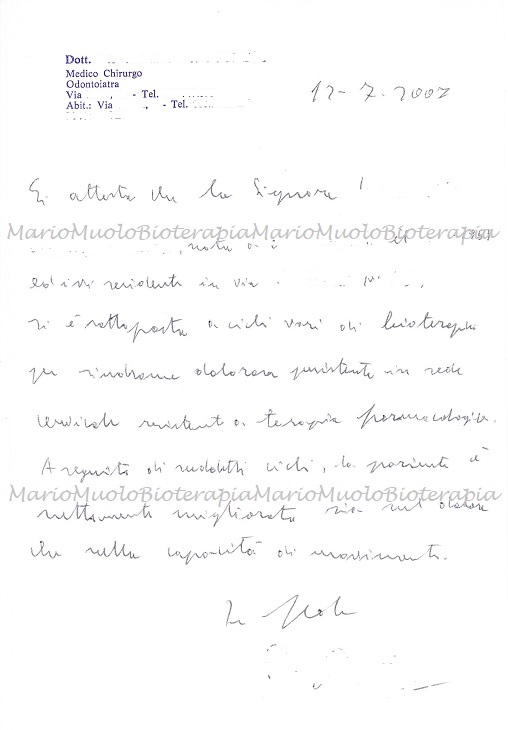 Dott.
Medico Chirurgo
Odontoiatra
Via , - Tel.
Abit.: Via ., - Tel.
12-7-2007
Si attesta che la Signora
MarioMuoloBioterapiaMarioMuoloBioterapia
, nata a
ed ivi residente in via
si è sottoposta a cicli vari di bioterapia
per sindrome dolorosa persistente in sede
cervicale resistente a terapia farmacologica.
A seguito di suddetti cicli, la paziente è
MarioMuoloBioterapiaMarioMuoloBioterapia
nettamente migliorata sia nel dolore
che nella capacità di movimenti.
In fede